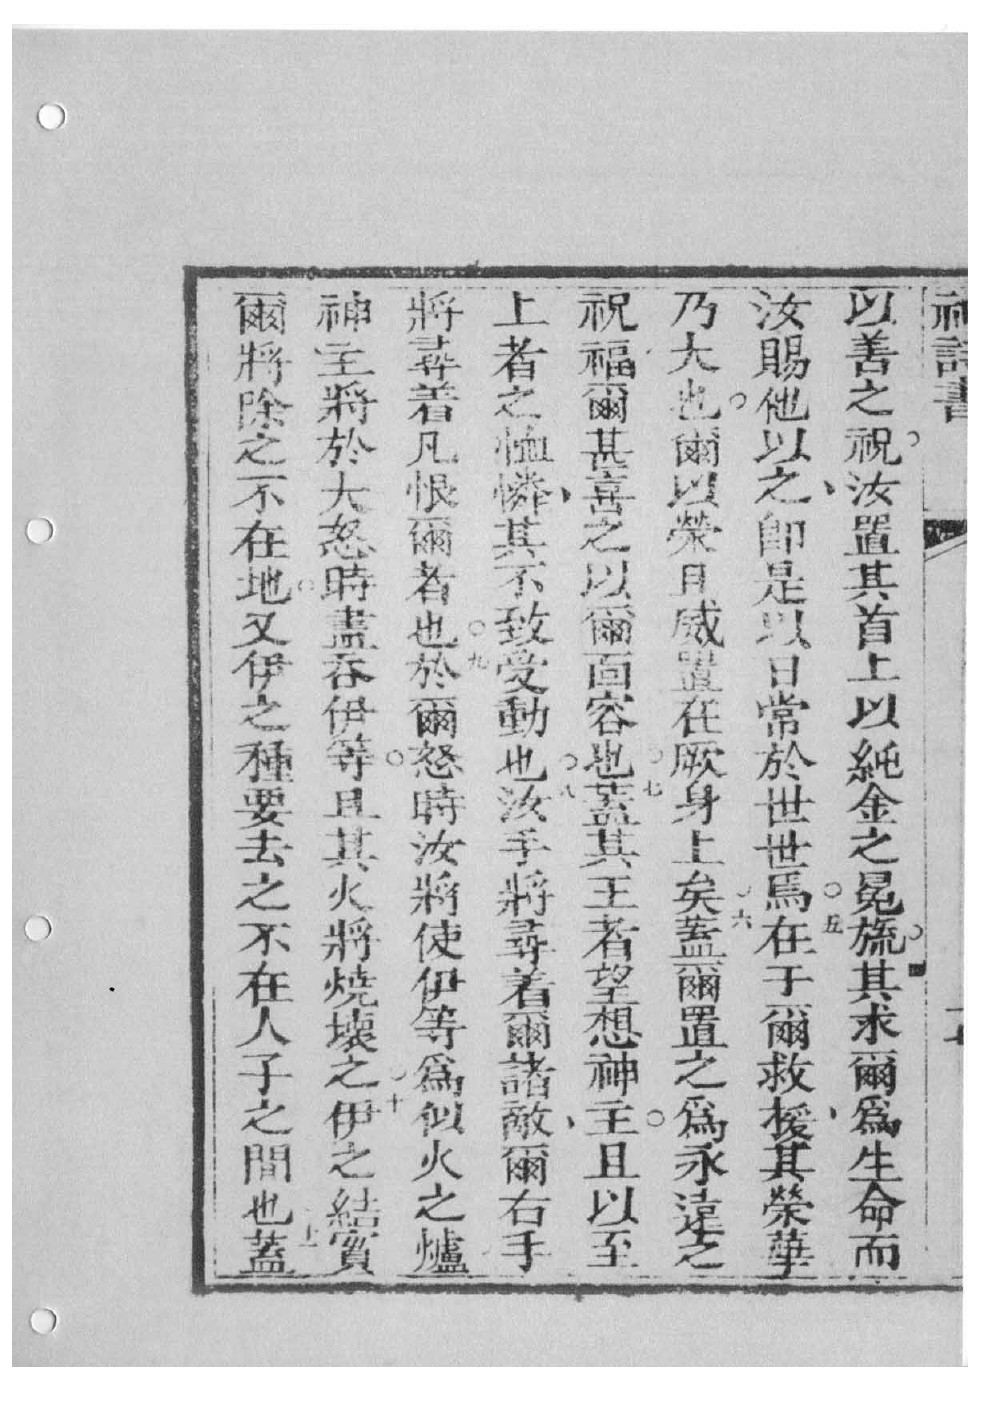 神詩書
以善之祝汝置其首上以純金之冕旒四其求爾為生命而
汝賜他以之即是以日常於世世焉五在于爾救援其榮華
乃大也爾以榮且威置在厥身上矣六蓋爾置之為永遠之
祝福爾甚喜之以爾面容也七蓋其王者望想神主且以至
上者之恤憐其不致受動也八汝手將尋着爾諸敵爾右手
將尋着凡恨爾者也九於爾怒時汝將使伊等為似火之爐
神主將於大怒時盡吞伊等且其火將燒壞之十伊之結實
爾將除之不在地又伊之種要去之不在人子之間也十一蓋